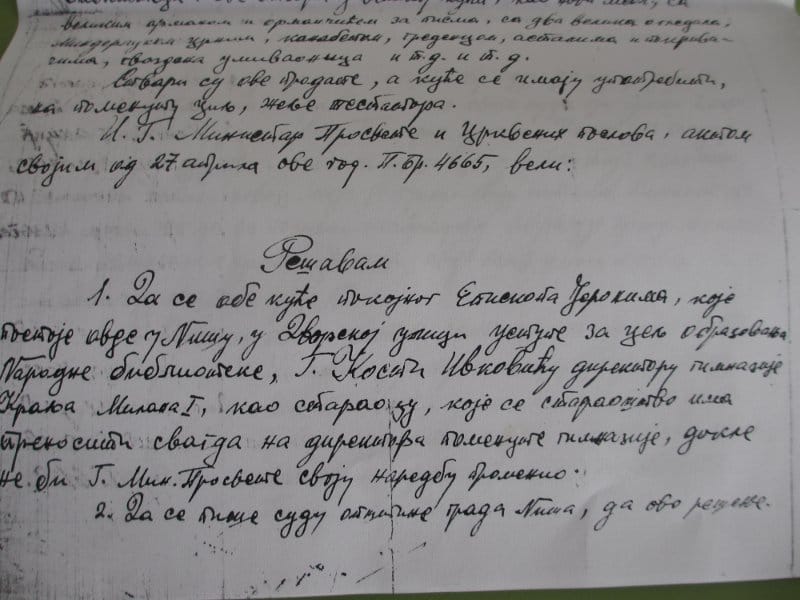 великим орманом и орманчићем за писма, са два велика огледала,
миндерлуком црним, канабетом, креденцом, асталима и
чима, гвоздена умиваоница и т.д. и т.д.
Ствари су ове продате, а куће се имају употребити,
на поменуту цељ, жеље тестатора.
И. Г. Министар Просвете и Црквених послова, актом
својим од 27 априла ове год. П. бр. 4665, вели:
Решавам
1. Да се обе куће покојног Епископа Јеронима, које
постоје овде у Нишу, у Дворској улици уступе за цељ образовања
Народне библиотеке, Г. Кости Ивковићу директору гимназије
Краља Милана I, као стараоцу, које се стараоцтво има
преносити свагда на директора поменуте гимназије, докле
не би Г. Мин. Просвете своју наредбу променио.
2. Да се пише суду општине града Ниша, да ово решење.